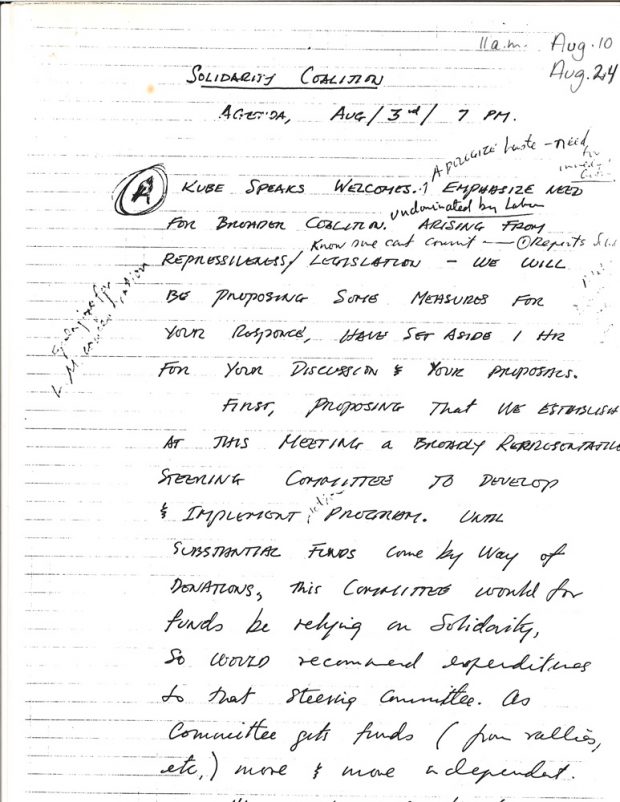 11 a.m. Aug. 10
Aug. 24
SOLIDARITY COALITION
AGENDA, AUG / 3rd / 7 PM.
APOLOGIZE haste - need
for
A KUBE SPEAKS WELCOMES. EMPHASIZE NEED
undominated by Labour
FOR BROADER COALITION. ARISING FROM
Know one cant commit — ① Reports
REPRESSIVENESS / LEGISLATION - WE WILL
BE PROPOSING SOME MEASURES FOR
YOUR RESPONCE, HAVE SET ASIDE 1 HR
FOR YOUR DISCUSSION & YOUR PROPOSALS.
FIRST, PROPOSING That WE ESTABLISH
AT THIS MEETING A BROADLY REPRESENTATIVE
STEERING COMMITTEE TO DEVELOP
& IMPLEMENT action PROGRAM. UNTIL
SUBSTANTIAL FUNDS come by Way of
DONATIONS, this COMMITTEE would for
funds be relying on Solidarity,
So WOULD recommend expenditures
to that Steering Committee. As
Committee gets funds ( from rallies,
etc,) more & more independent.
Apologize for